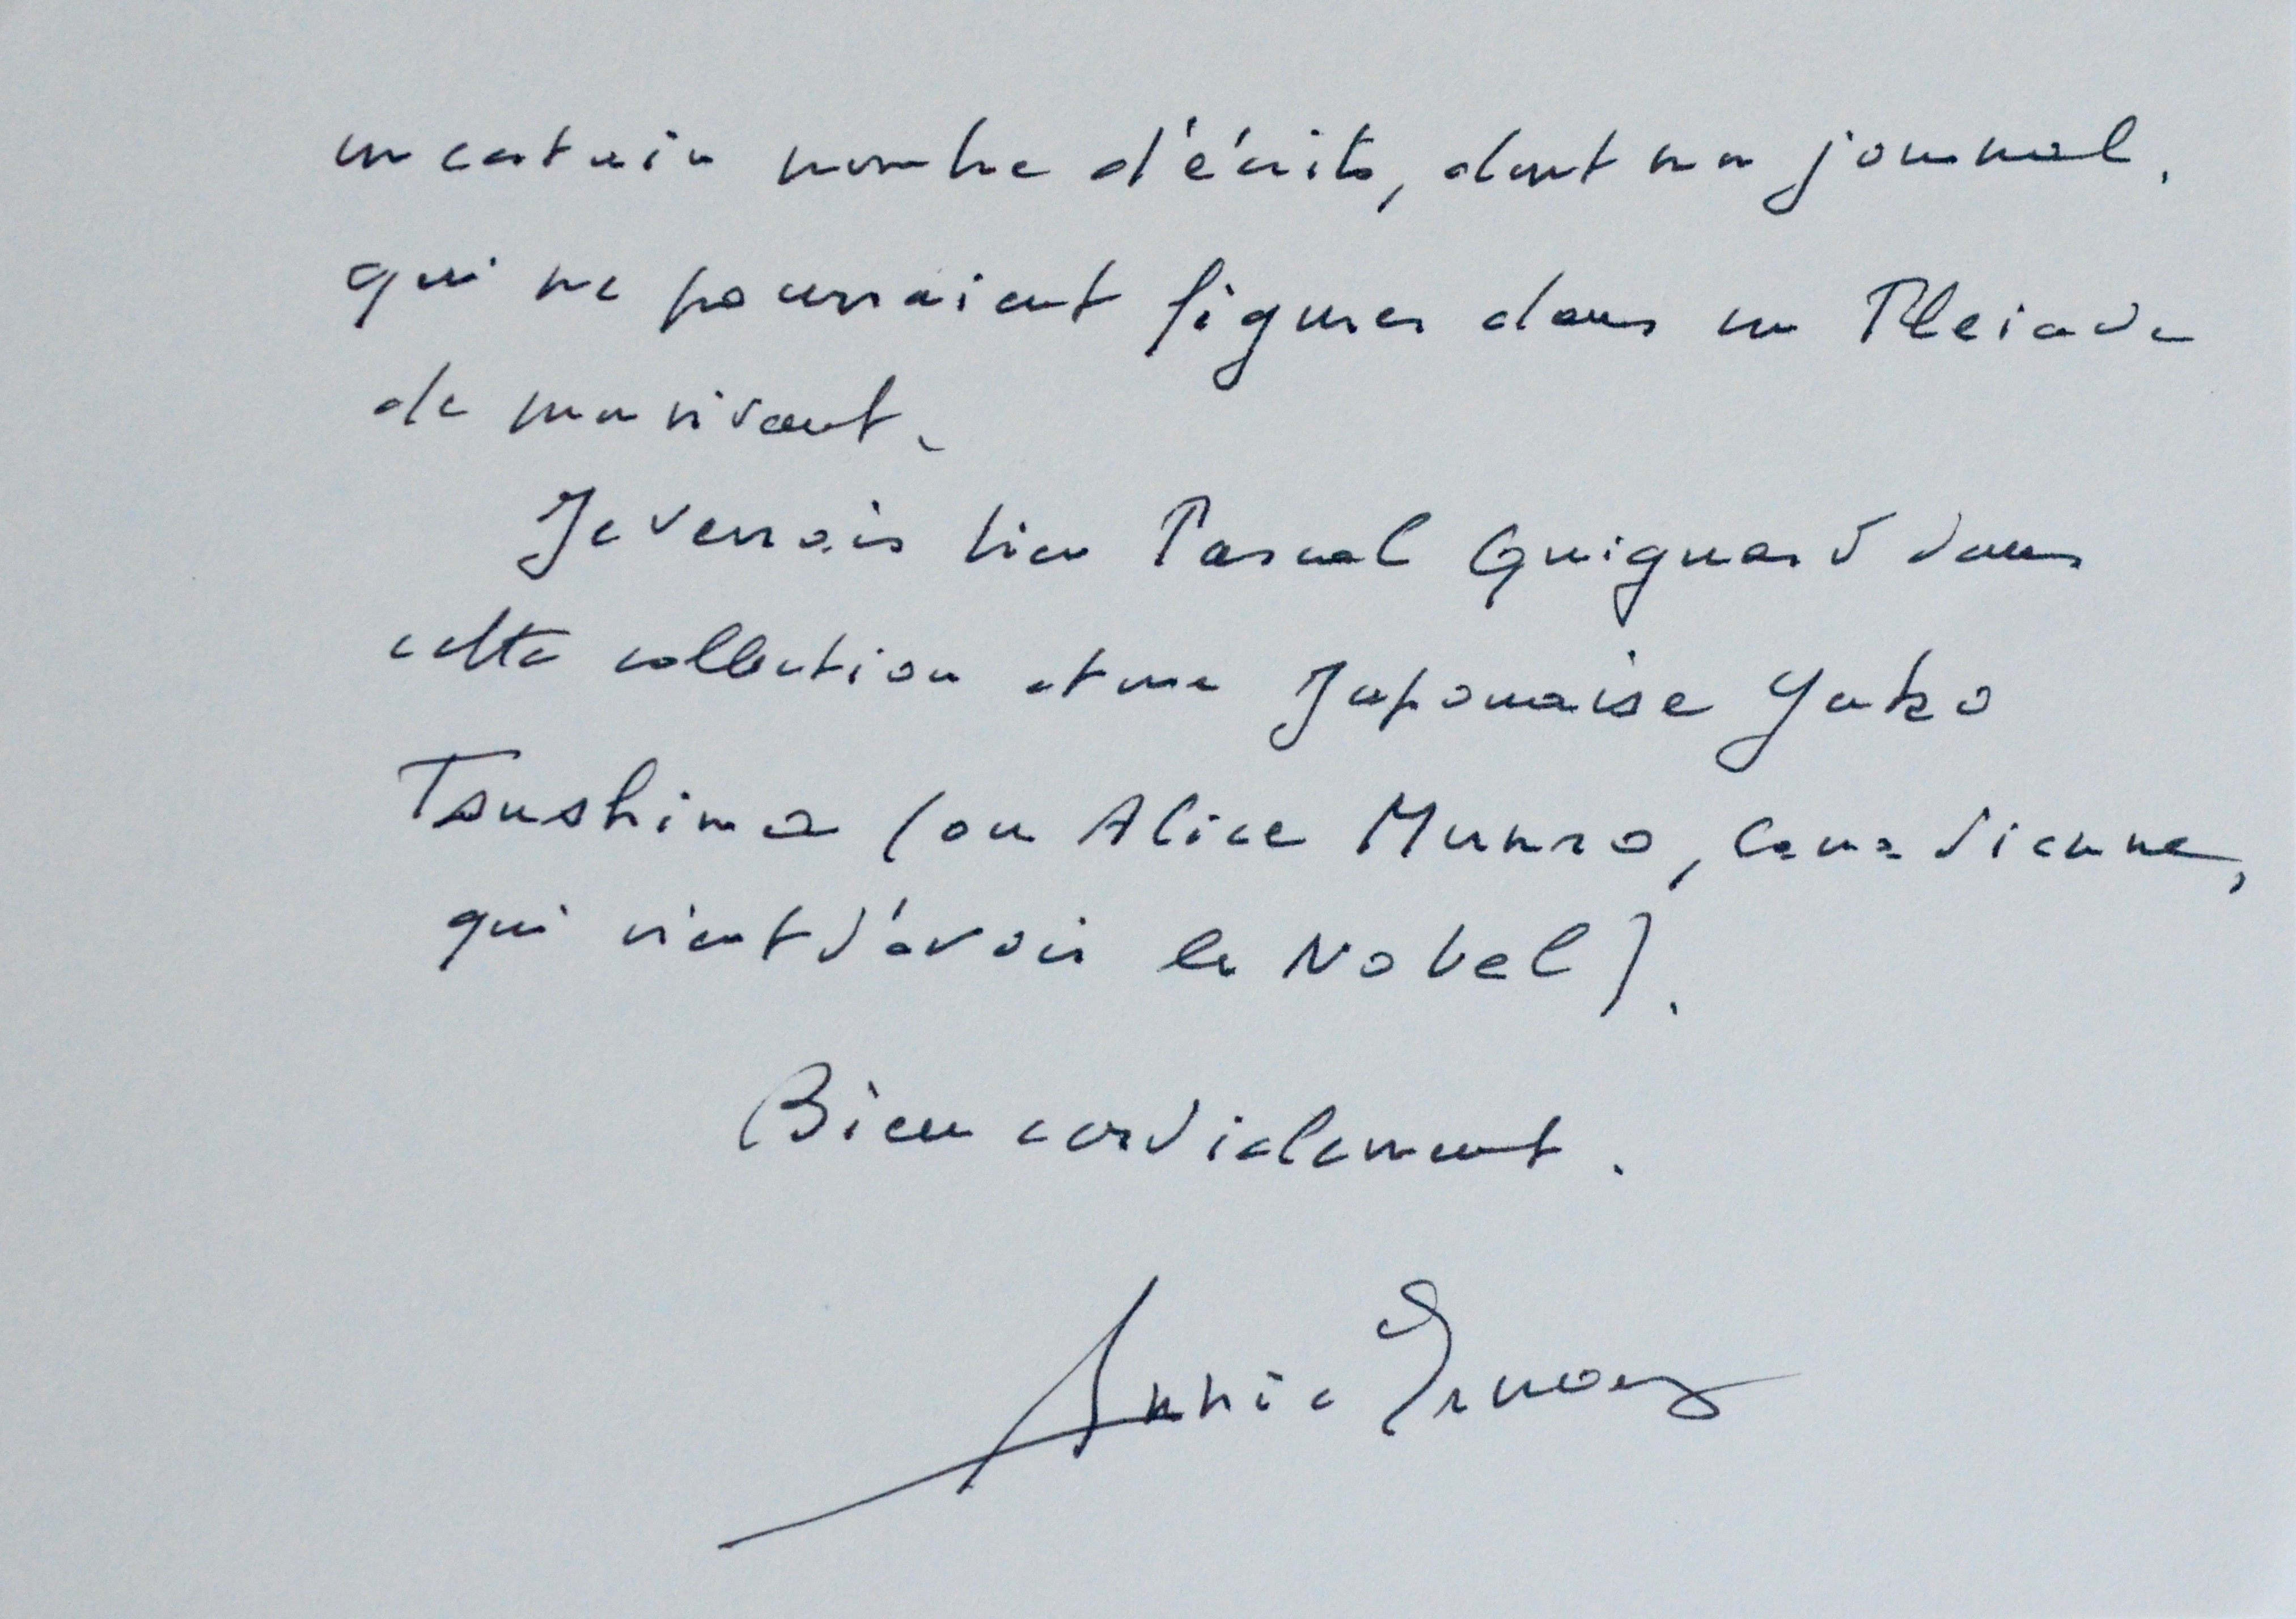 un certain nombre d'écrits, dont mon journal,
qui ne pourraient figurer dans un Pleiade
de mon vivant.
Je verrais bien Pascal Quignard dans
cette collection et une Japonaise Yuko
Tsushima (ou Alice Munro, Canadienne,
qui vient d'avoir le Nobel).
Bien cordialement.
Annie Ernaux